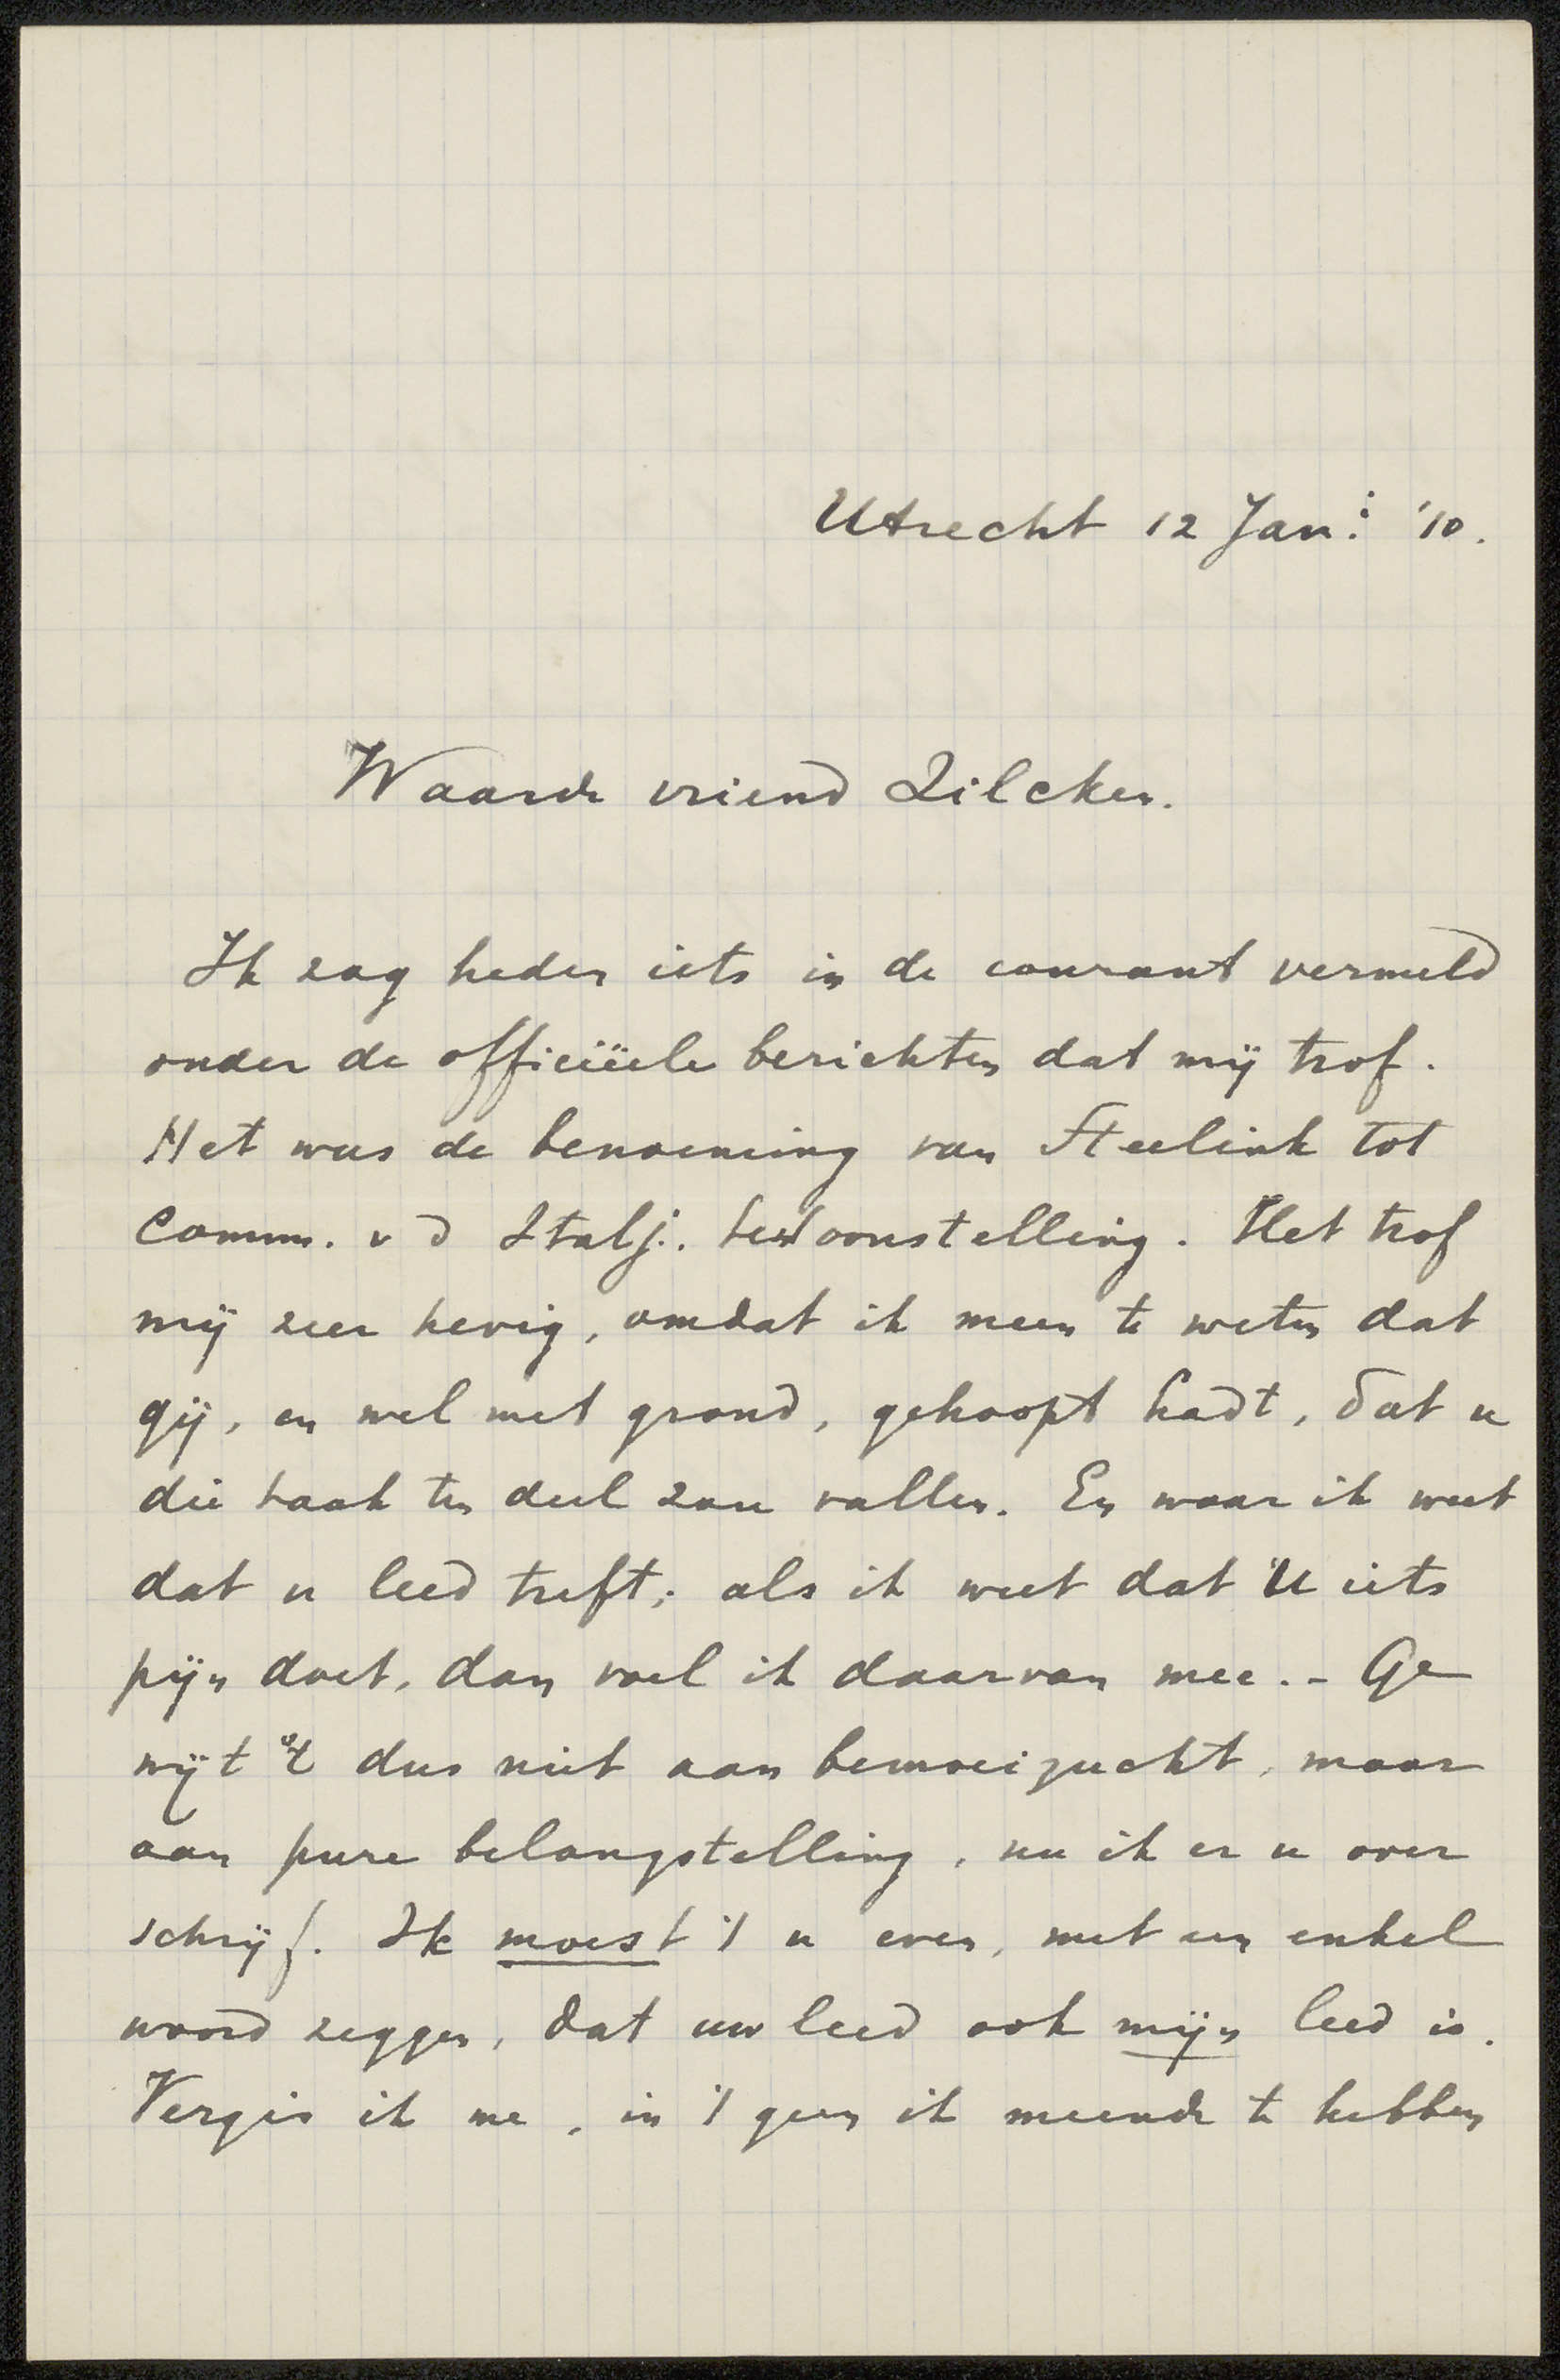 Utrecht 12 Jan: '10.
Waarde vriend Zilcken.
Ik zag heden iets in de courant vermeld
onder de officiëele berichten dat mij trof.
Het was de benoeming van Steelink tot
Comm. v d Italj. tentoonstelling. Het trof
mij zeer hevig, omdat ik meen te weten dat
gij, en wel met grond, gehoopt hadt, dat u
die taak ten deel zou vallen. En waar ik weet
dat u leed treft; als ik weet dat U iets
pijn doet, dan voel ik daarvan mee. - Ge
wijt 't dus niet aan bemoeizucht, maar
aan pure belangstelling, nu ik er u over
schrijf. Ik moest 't u even, met een enkel
woord zeggen, dat uw leed ook mijn leed is.
Vergis ik me, in 't geen ik meende te hebben